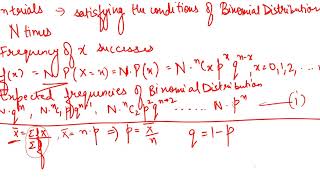 n trials → satisfying the conditions of Binomial Distribution
N times
Frequency of x successes
f(x) = N.P(X=x) = N.P(x) = N.ⁿCₓ pˣ qⁿ⁻ˣ, x=0,1,2,...
Expected frequencies of Binomial Distribution
N.qⁿ, N.ⁿC₁ p qⁿ⁻¹, N.ⁿC₂ p² qⁿ⁺² ...... N.pⁿ —— (i)
x̄ = Σfx/Σf, x̄ = n.p ⇒ p = x̄/n q = 1-p